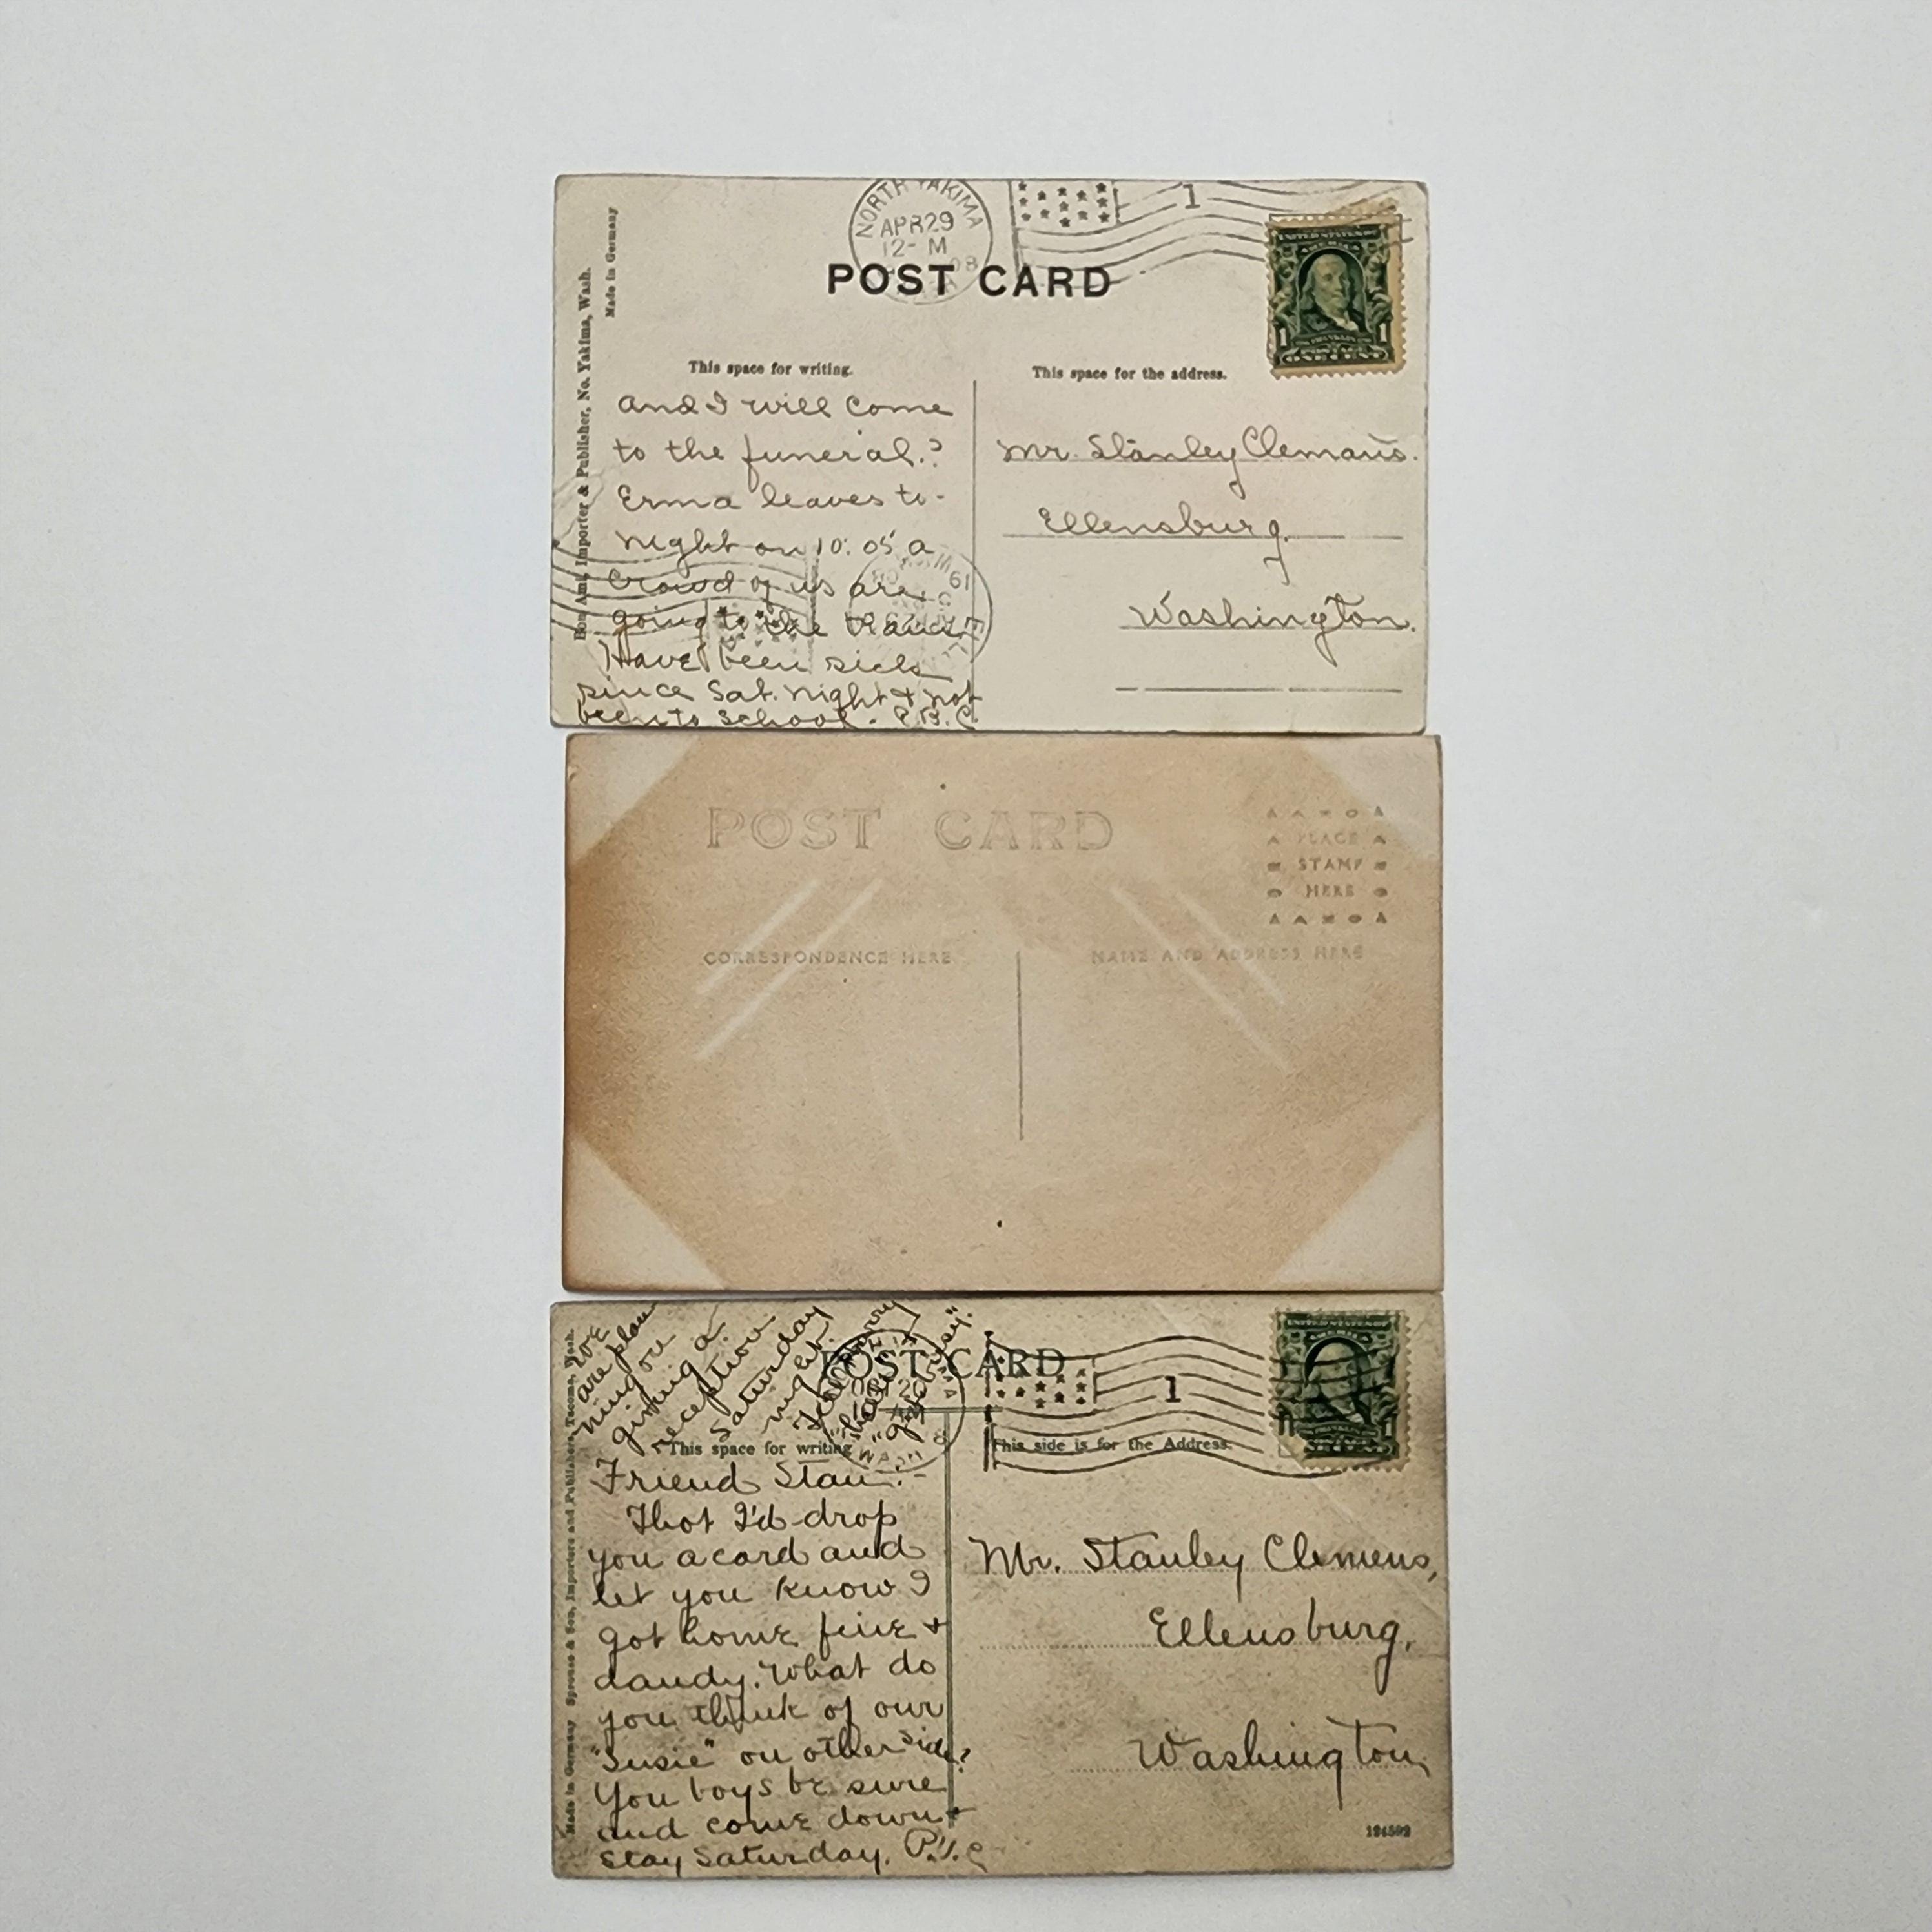 NORTH YAKIMA
APR 29
12- M
08
1
POST CARD
UNITED STATES OF
AMERICA
1 FRANKLIN 1
POSTAGE
ONE CENT
Made in Germany
Bon Ami, Importer & Publisher, No. Yakima, Wash.
This space for writing.
and I will come
to the funeral.?
Erma leaves to-
night on 10:05 a
crowd of us are
going to the train
Have been sick
since Sat. night & not
been to school. P.B.C.
This space for the address.
Mr. Stanley Clemans.
Ellensburg.
Washington.
POST CARD
PLACE
STAMP
HERE
CORRESPONDENCE HERE
NAME AND ADDRESS HERE
Made in Germany Sprouse & Son, Importers and Publishers, Tacoma, Wash.
We
are plan
ning on
giving a
reception
Saturday
night.
POST CARD
1
UNITED STATES OF
AMERICA
This space for writing
Friend Stan:-
Thot I'd drop
you a card and
let you know I
got home fine &
dandy. What do
you think of our
"Susie" on other side?
You boys be sure
and come down &
stay Saturday.
This side is for the Address.
Mr. Stanley Clemens,
Ellensburg,
Washington,